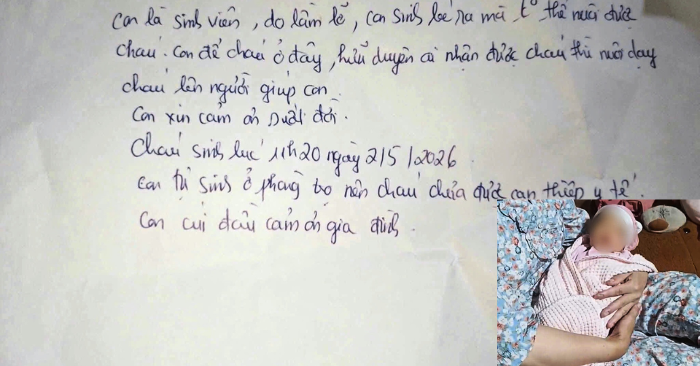 Con là sinh viên, do lầm lỡ, con sinh bé ra mà k° thể nuôi được
cháu. Con để cháu ở đây, hữu duyên ai nhận được cháu thì nuôi dạy
cháu lên người giúp con.
Con xin cảm ơn suốt đời.
Cháu sinh lúc 11h20 ngày 2/5/2026
Con tự sinh ở phòng trọ nên cháu chưa được can thiệp y tế.
Con cúi đầu cảm ơn gia đình.